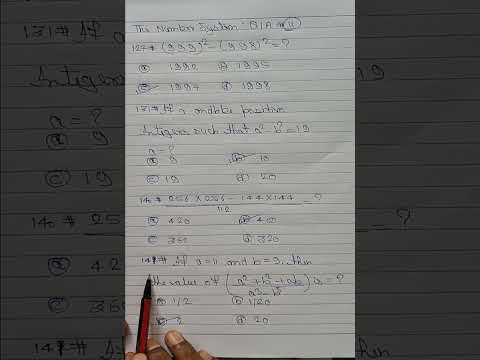 The Number System Q/A 11
127# (999)² - (998)² = ?
a 1992 b 1995
c 1997 d 1998
131# If a and b be positive
Integers such that a² - b² = 19
a = ?
a 9 b 10
c 19 d 20
140# 256 X 256 - 144 X 144 = ?
112
a 420 b 400
c 360 d 320
141# If a = 11 and b = 9, then
the value of (a² + b² + ab) is = ?
a³ - b³
a 1/2 b 1/20
c 2 d 20